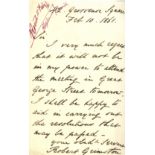 Grosvenor Square
Feb. 10. 1861.
Sir
I very much regret
that it will not be
in my power to attend
the meeting in Great
George Street tomorrow
I shall be happy to
aid in carrying out
the resolutions that
may be passed –
your Servant
Robert Grimston